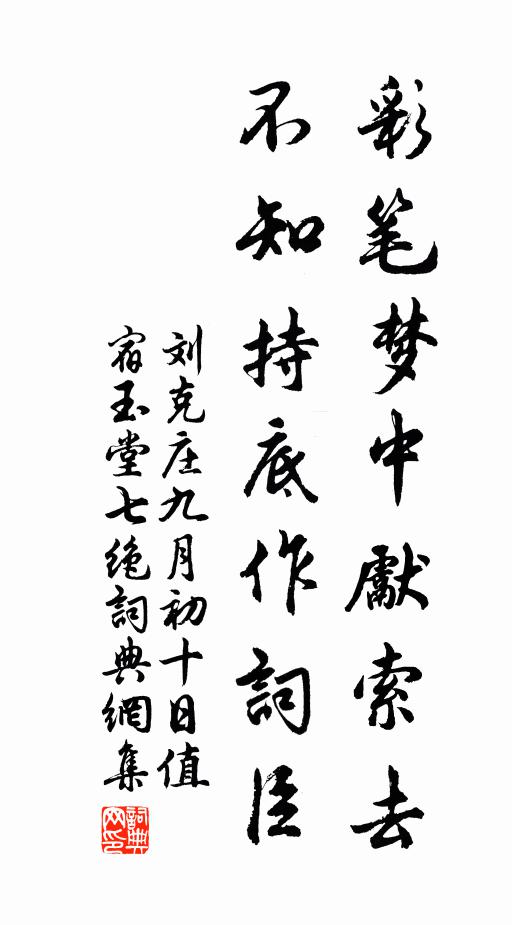 彩笔梦中献索去
不知持底作詞臣
刘克庄九月初十日值
宿玉堂七绝詞典網集
詞典
网印